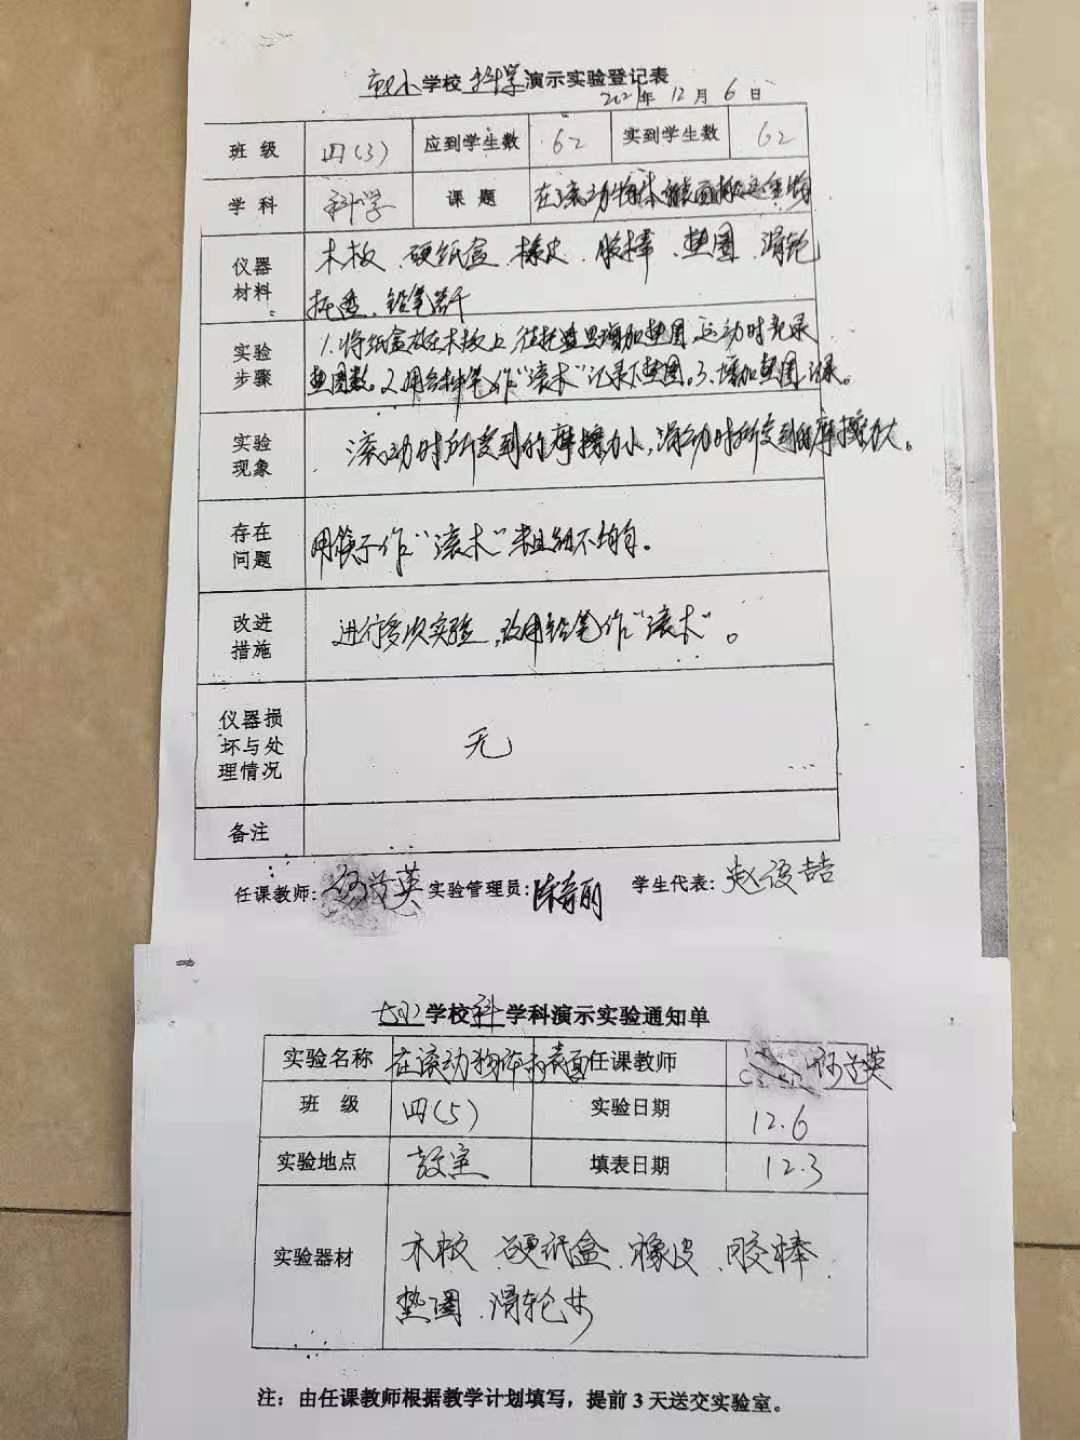 学校 科学 演示实验登记表
2021年 12月 6日
班级 四(3) 应到学生数 62 实到学生数 62
学科 科学 课题 在滚动物体表面
仪器材料 木板、硬纸盒、橡皮、胶棒、垫圈、滑轮
托盘、铅笔若干
实验步骤 1.将纸盒放在木板上 往托盘里增加垫圈 运动时记录
垫圈数。2.用各种笔作“滚木”记录下垫圈。3.增加垫圈记录。
实验现象 滚动时所受到的摩擦力小,滑动时所受到的摩擦力大。
存在问题 用筷子作“滚木”粗细不均匀。
改进措施 进行多次实验,改用铅笔作“滚木”。
仪器损坏与处理情况 无
备注
任课教师: 英 实验管理员: 丽 学生代表: 赵俊喆
学校 科 学科演示实验通知单
实验名称 在滚动物体的表面 任课教师 英
班级 四(5) 实验日期 12.6
实验地点 教室 填表日期 12.3
实验器材 木板、硬纸盒、橡皮、胶棒、
垫圈、滑轮
注:由任课教师根据教学计划填写,提前3天送交实验室。